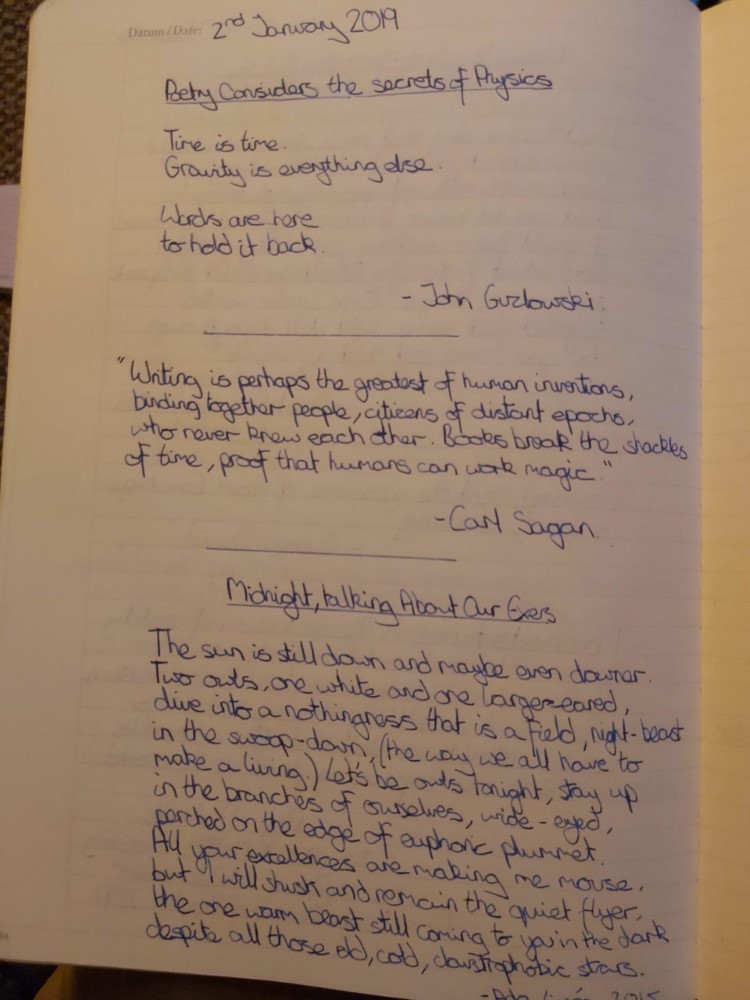 Datum / Date: 2nd January 2019
Poetry Considers the secrets of Physics
Time is time.
Gravity is everything else.
Words are here
to hold it back.
- John Guzlowski.
"Writing is perhaps the greatest of human inventions,
binding together people, citizens of distant epochs,
who never knew each other. Books break the shackles
of time, proof that humans can work magic."
- Carl Sagan.
Midnight, talking About Our Exes
The sun is still down and maybe even downer.
Two owls, one white and one large-eared,
dive into a nothingness that is a field, night-beast
in the swoop-down, (the way we all have to
make a living.) Let's be owls tonight, stay up
in the branches of ourselves, wide-eyed,
perched on the edge of euphoric plummet.
All your excellences are making me mouse,
but I will shush and remain the quiet flyer,
the one warm beast still coming to you in the dark
despite all those old, cold, claustrophobic stars.
- Ada Limón, 2015